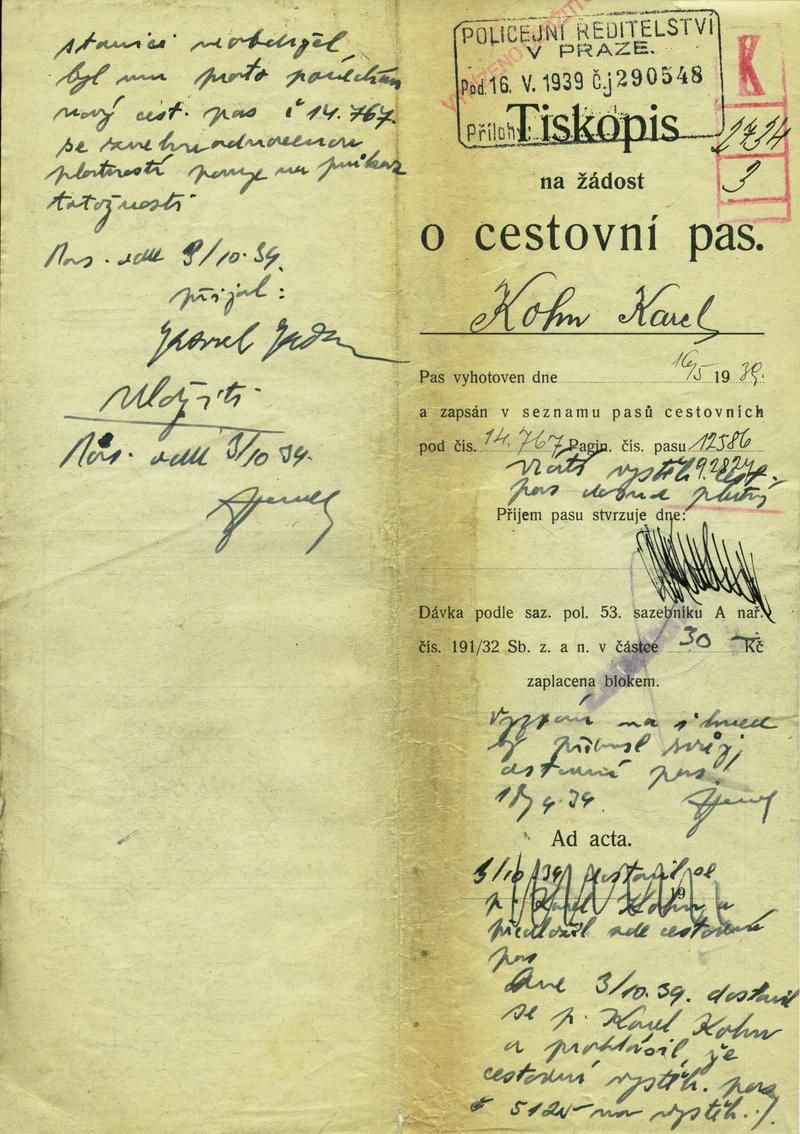 POLICEJNÍ ŘEDITELSTVÍ
V PRAZE.
Pod. 16. V. 1939 čj 290548
Příloh
K
2734
3
Tiskopis
na žádost
o cestovní pas.
Kohn Karel
Pas vyhotoven dne 16/5 1939.
a zapsán v seznamu pasů cestovních
pod čís. 14.767 Pagin. čís. pasu 12586
vystěh. cest.
pas
Příjem pasu stvrzuje dne:
Dávka podle saz. pol. 53. sazebníku A nař.
čís. 191/32 Sb. z. a n. v částce 30 Kč
zaplacena blokem.
na
by svůj
cestovní pas
9. 39.
Ad acta.
3/10 39 dostavil se
p. Karel Kohn a
předložil zde cestovní
pas
Dne 3/10.39. dostavil
se p. Karel Kohn
a prohlásil, že
cestovní vystěh. pas
č 5125 na vystěh.
stanici neobdržel
byl mu proto ponechán
nový cest. pas č 14.767.
se
platností pouze na průkaz
totožnosti
3/10.39.
přijal:
Uložiti
3/10 39.